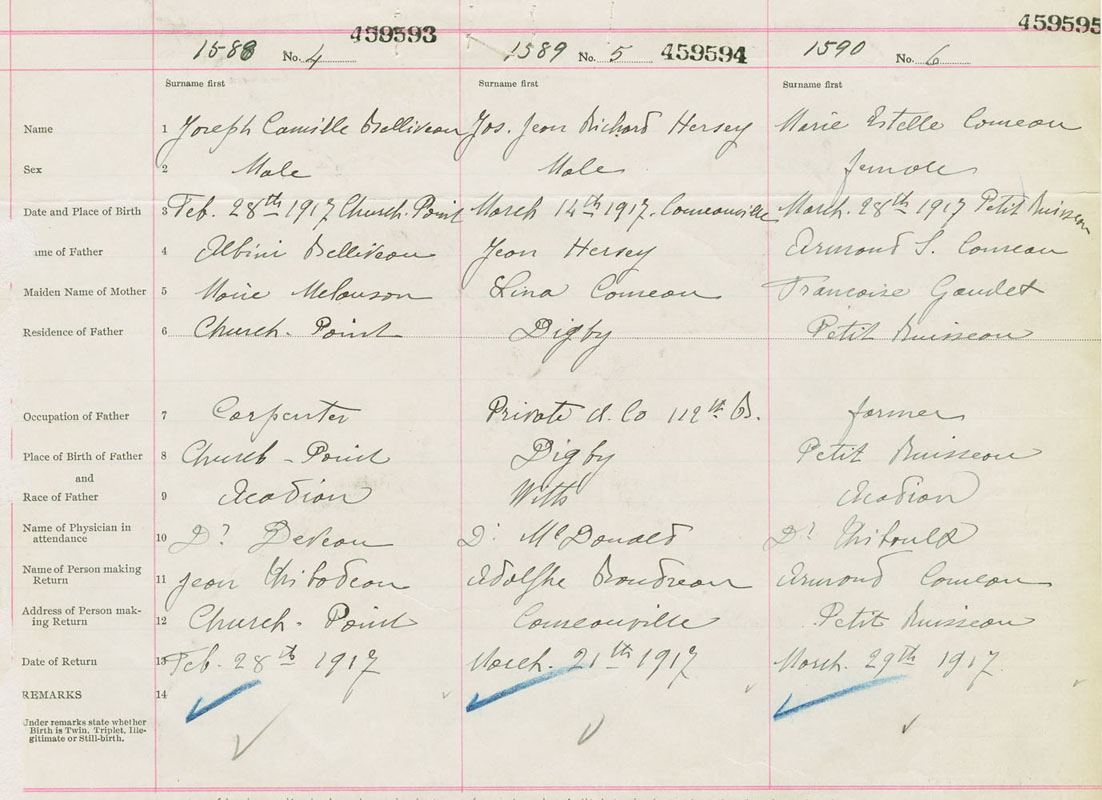 459593 459595
1588 No. 4 1589 No. 5 459594 1590 No. 6
Surname first Surname first Surname first
Name 1 Joseph Camille Belliveau Jos. Jean Richard Hersey Marie Estelle Comeau
Sex 2 Male Male female
Date and Place of Birth 3 Feb. 28th 1917 Church-Point March 14th 1917. Comeauville March. 28th 1917 Petit Ruisseau
ame of Father 4 Albini Belliveau Jean Hersey Armond S. Comeau
Maiden Name of Mother 5 Marie Melanson Lina Comeau Francoise Gaudet
Residence of Father 6 Church-Point Digby Petit Ruisseau
Occupation of Father 7 Carpenter Private A. Co 112th B. farmer
Place of Birth of Father 8 Church-Point Digby Petit Ruisseau
and
Race of Father 9 Acadian Acadian
Name of Physician in
attendance 10 Dr DeVeau Dr McDonald Dr
Name of Person making
Return 11 Jean Thibodeau Adolphe Boudreau Armond Comeau
Address of Person mak-
ing Return 12 Church-Point Comeauville Petit Ruisseau
Date of Return 13 Feb. 28th 1917 March. 21th 1917 March. 29th 1917.
REMARKS 14
Under remarks state whether
Birth is Twin, Triplet, Ille-
gitimate or Still-birth.